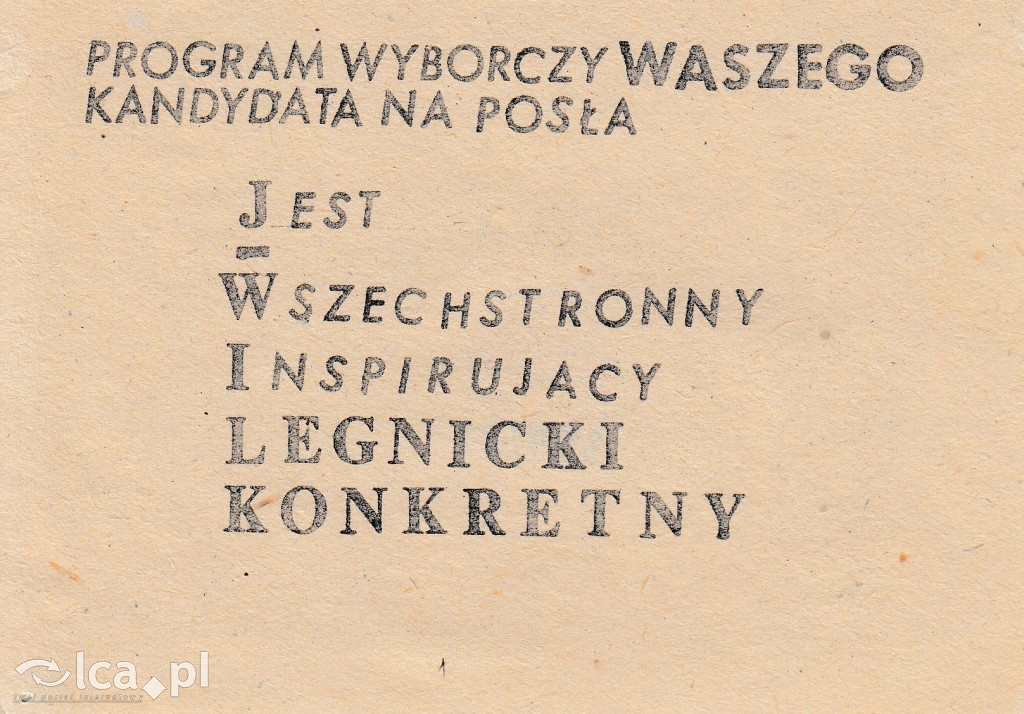 PROGRAM WYBORCZY WASZEGO
KANDYDATA NA POSŁA
JEST
WSZECHSTRONNY
INSPIRUJACY
LEGNICKI
KONKRETNY
lca.pl
Twój portal internetowy